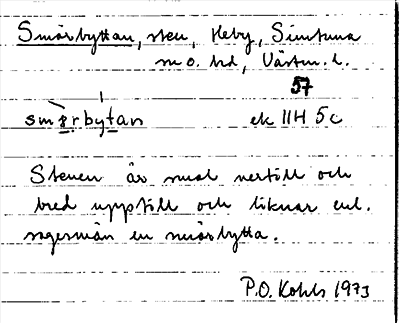 Smörbyttan, sten, Heby, Simtuna
m o. hd, Västm. l.
57
smœ̀rbýtan ek 11H 5c
Stenen är smal nertill och
bred upptill och liknar enl.
sagesmän en smörbytta.
P.O. Kohls 1973